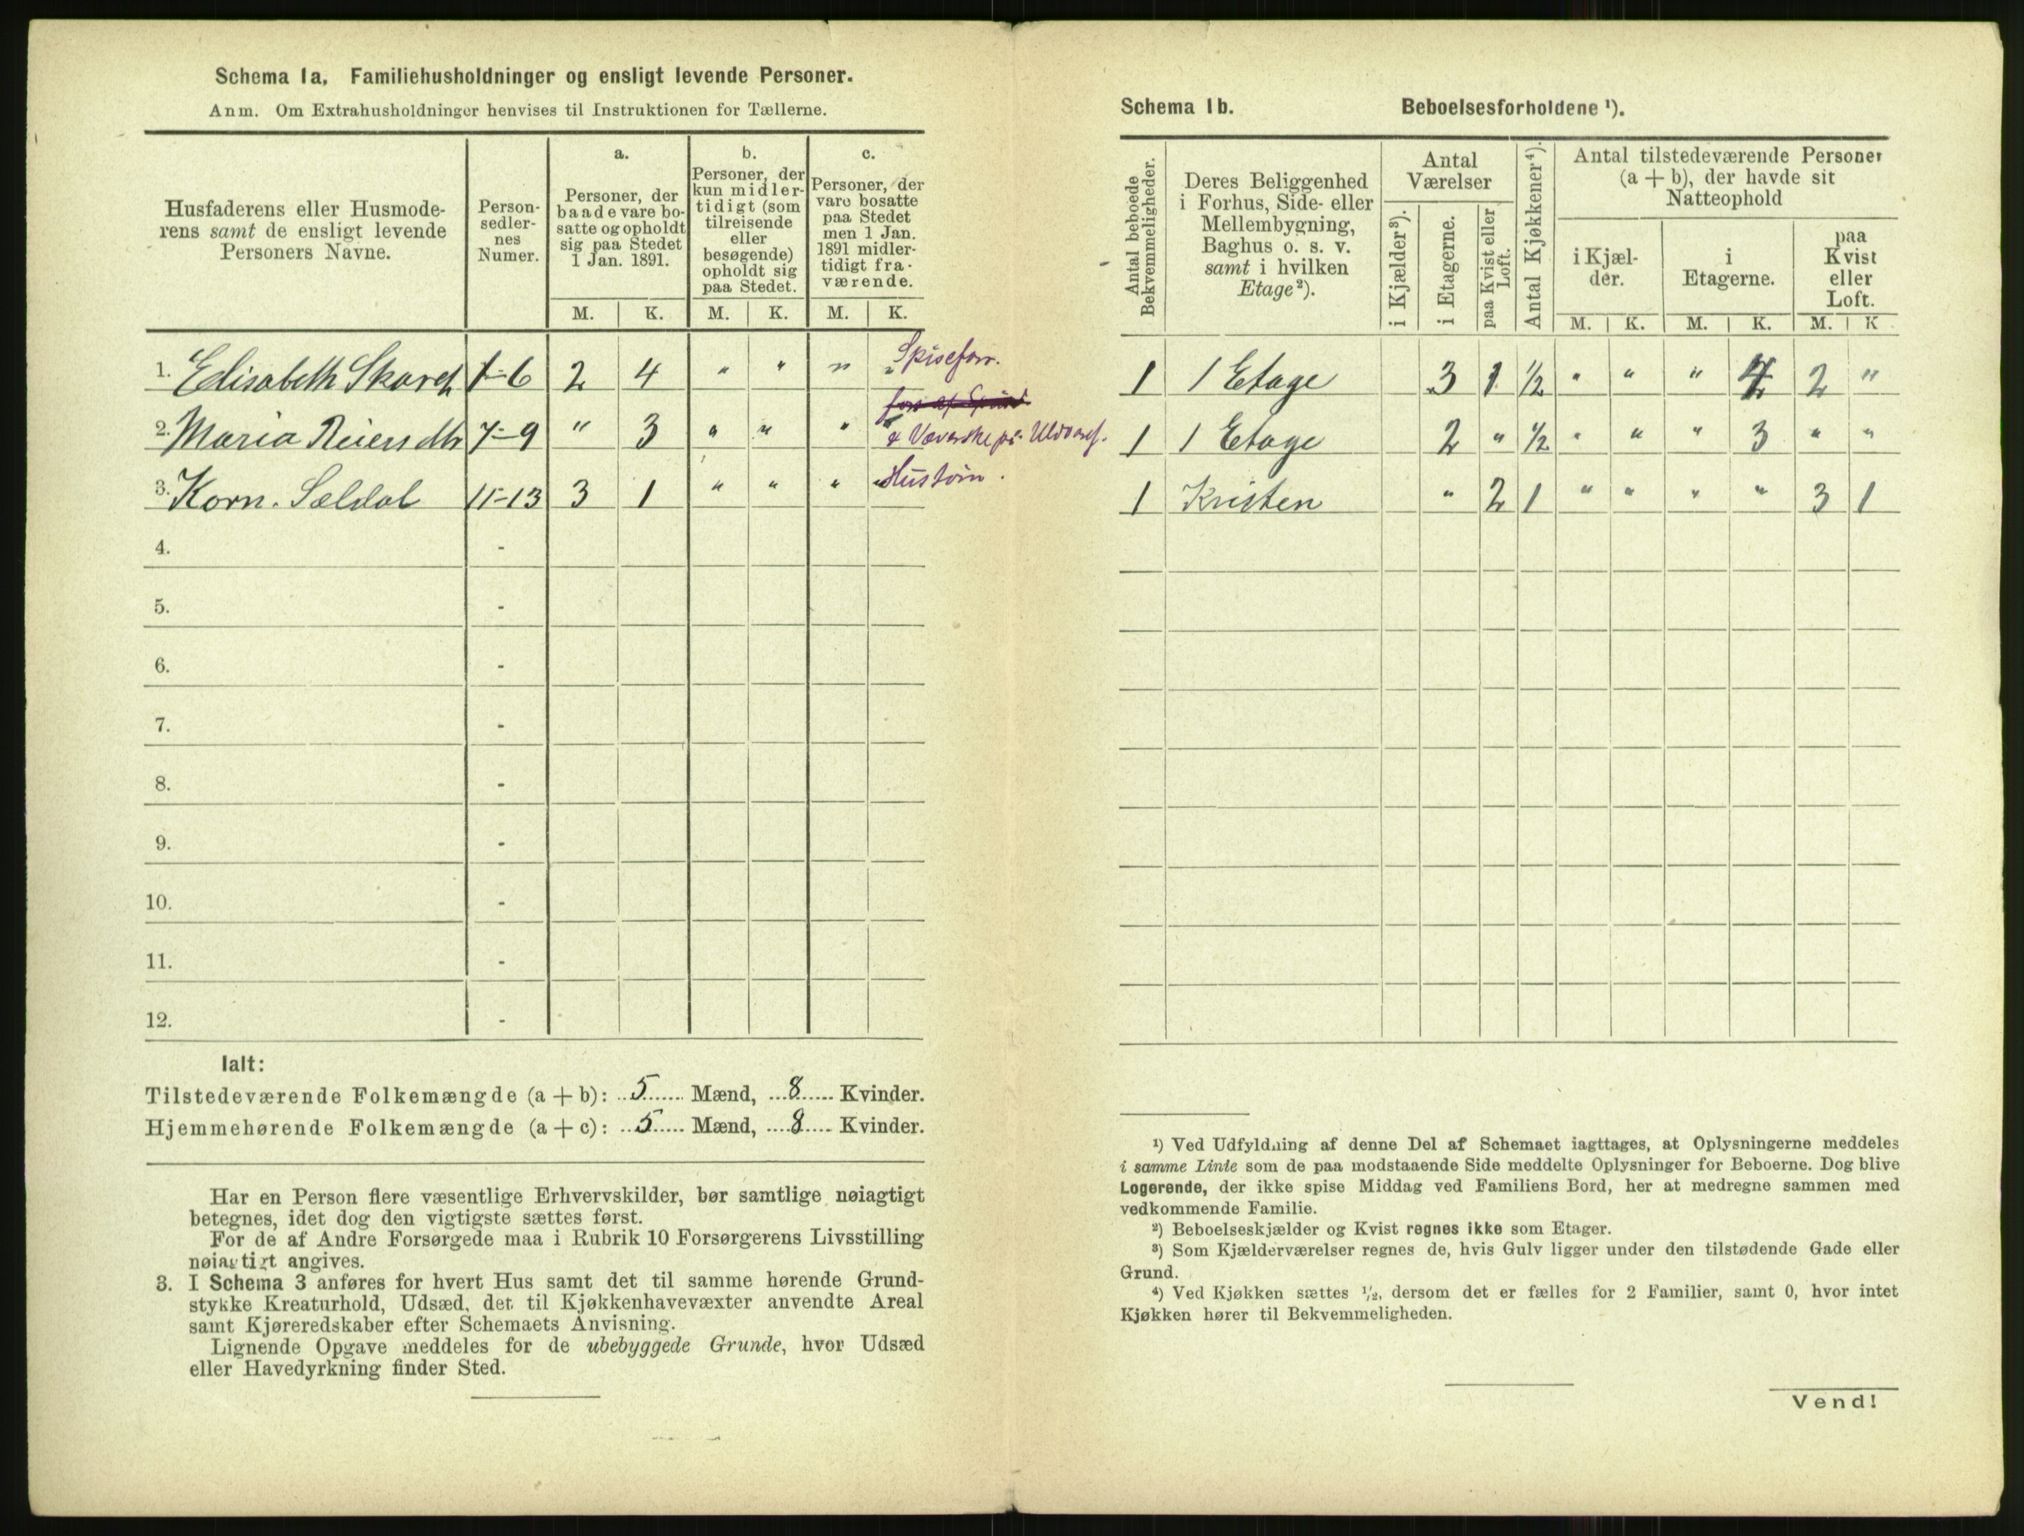 Schema 1a. Familiehusholdninger og ensligt levende Personer.
Anm. Om Extrahusholdninger henvises til Instruktionen for Tællerne.
Husfaderens eller Husmoderens samt de ensligt levende Personers Navne.
Personsedlernes Numer.
a.
Personer, der baade vare bosatte og opholdt sig paa Stedet 1 Jan. 1891.
b.
Personer, der kun midlertidigt (som tilreisende eller besøgende) opholdt sig paa Stedet.
c.
Personer, der vare bosatte paa Stedet men 1 Jan. 1891 midlertidigt fraværende.
M. K. M. K. M. K.
1. Elisabeth 1-6 2 4 " " " " Spiseforr.
2. Maria Reiersdtr 7-9 " 3 " " " & Væverske
3. Korn. Sældal 11-13 3 1 " " " "
4. -
5. -
6. -
7. -
8. -
9. -
10. -
11. -
12. -
Ialt:
Tilstedeværende Folkemængde (a + b): 5 Mænd, 8 Kvinder.
Hjemmehørende Folkemængde (a + c): 5 Mænd, 8 Kvinder.
Har en Person flere væsentlige Erhvervskilder, bør samtlige nøiagtigt
betegnes, idet dog den vigtigste sættes først.
For de af Andre Forsørgede maa i Rubrik 10 Forsørgerens Livsstilling
nøiagtigt angives.
3. I Schema 3 anføres for hvert Hus samt det til samme hørende Grund-
stykke Kreaturhold, Udsæd, det til Kjøkkenhavevæxter anvendte Areal
samt Kjøreredskaber efter Schemaets Anvisning.
Lignende Opgave meddeles for de ubebyggede Grunde, hvor Udsæd
eller Havedyrkning finder Sted.
Schema 1b. Beboelsesforholdene ¹).
Antal beboede Bekvemmeligheder.
Deres Beliggenhed i Forhus, Side- eller Mellembygning, Baghus o. s. v. samt i hvilken Etage²).
Antal Værelser
i Kjælder³).
i Etagerne.
paa Kvist eller Loft.
Antal Kjøkkener⁴).
Antal tilstedeværende Personer (a + b), der havde sit Natteophold
i Kjælder.
i Etagerne.
paa Kvist eller Loft.
M. K. M. K. M. K
1 1 Etage 3 1 ½ " " " 4 2 "
1 1 Etage 2 " ½ " " " 3 " "
1 Kvisten " 2 1 " " " " 3 1
¹) Ved Udfyldning af denne Del af Schemaet iagttages, at Oplysningerne meddeles
i samme Linie som de paa modstaaende Side meddelte Oplysninger for Beboerne. Dog blive
Logerende, der ikke spise Middag ved Familiens Bord, her at medregne sammen med
vedkommende Familie.
²) Beboelseskjælder og Kvist regnes ikke som Etager.
³) Som Kjælderværelser regnes de, hvis Gulv ligger under den tilstødende Gade eller
Grund.
⁴) Ved Kjøkken sættes ½, dersom det er fælles for 2 Familier, samt 0, hvor intet
Kjøkken hører til Bekvemmeligheden.
Vend!